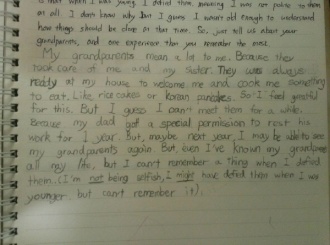 is that when I was young, I defied them, meaning I was not polite to them
at all. I don't know why but I guess I wasn't old enough to understand
how things should be done at that time. So, just tell us about your
grandparents, and one experience that you remember the most.
My grandparents mean a lot to me. Because they
took care of me and my sister. They was always
ready at my house to welcome me and cook me something
to eat. Like rice cakes or korean pancakes. So I feel grateful
for this. But I guess I can't meet them for a while.
Because my dad got a special permission to rest his
work for 1 year. But, maybe next year, I may be able to see
my grandparents again. But, even I've known my grandparents
all my life, but I can't remember a thing when I defied
them. (I'm not being selfish, I might have defied them when I was
younger but can't remember it).